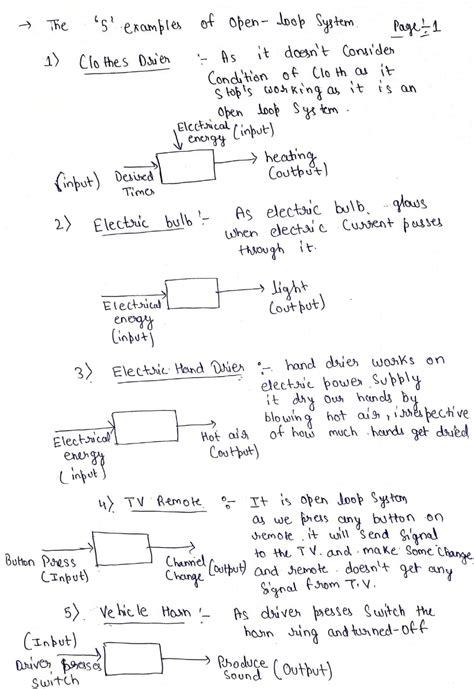 → The '5' examples of Open-loop System. Page:-1
1) Clothes Drier :- As it doesn't Consider
Condition of Cloth as it
Stop's working as it is an
Open loop System.
Electrical
energy (input)
(input) Desired
Timer
heating
(output)
2) Electric bulb :- As electric bulb glows
when electric Current passes
through it.
Electrical
energy
(input)
light
(output)
3) Electric Hand Drier :- hand drier works on
electric power Supply
it dry our hands by
blowing hot air, irrespective
of how much hands get dried
Electrical
energy
(input)
Hot air
(output)
4) TV Remote :- It is open loop System
as we press any button on
remote it will Send Signal
to the T.V. and make Some Change
and remote doesn't get any
Signal from T.V.
Button Press
(Input)
Channel
Change (output)
5) Vehicle Horn :- As driver presses Switch the
horn ring and turned-off
(Input)
Driver presses
Switch
Produce
Sound (Output)